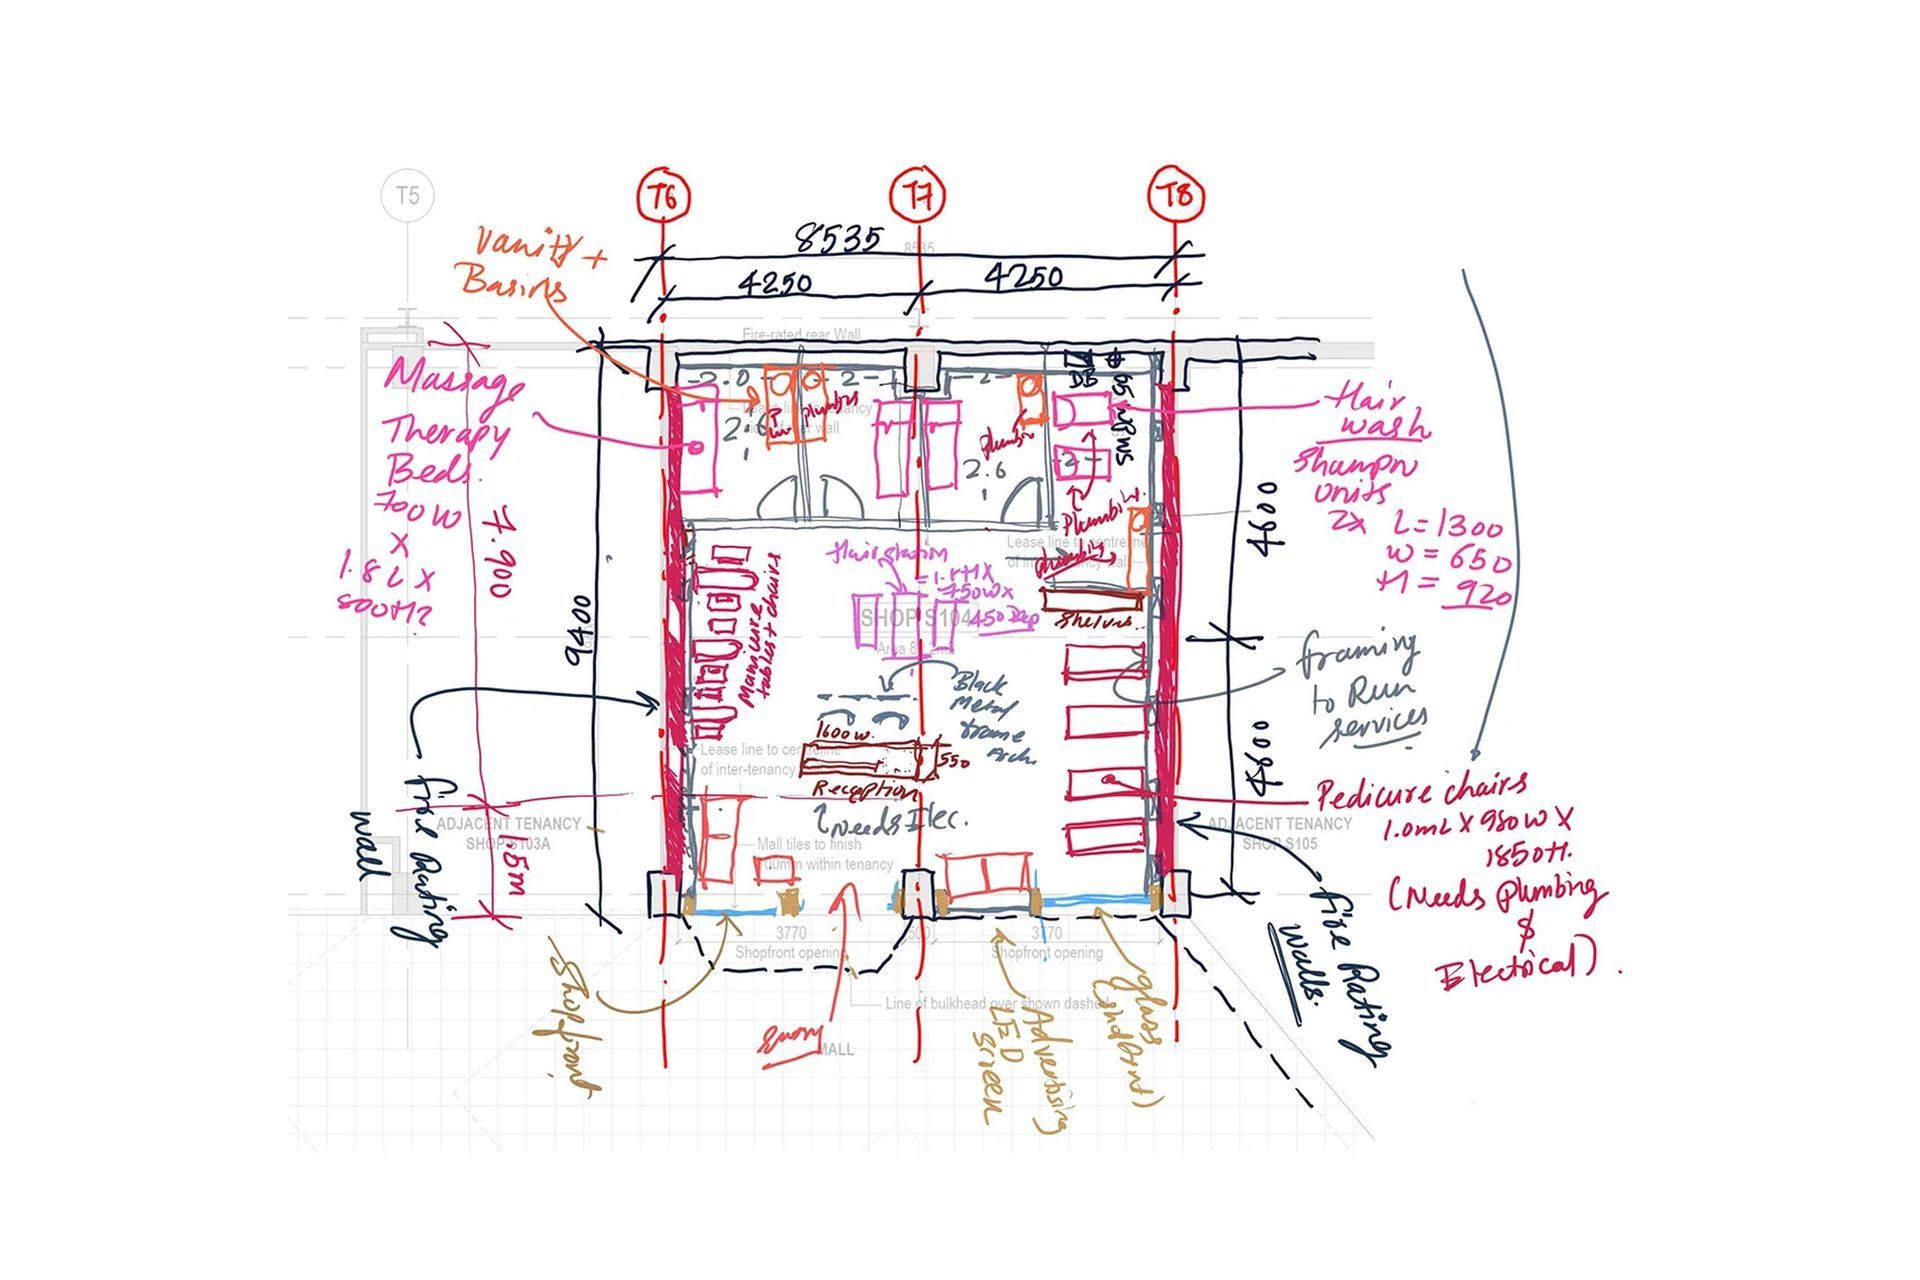 T5
T6
T7
T8
8535
8535
4250
4250
Vanity +
Basins
Fire-rated rear Wall
Massage
Therapy
Beds.
700W
X
1.8L X
7.900
9400
2.0
2
2
DB
2.6
plumbing
2.6
2
Plumbing
Hair
wash
Shampoo
units
2x L=1300
W = 650
H = 920
4600
4600
Lease line to centreline
Hair station
750W X
450 Dep
SHOP S104
Manicure
tables + chairs
Shelves..
Framing
to Run
services
Black
Metal
Frame
Arch.
1600W.
550
Reception
Needs Elec.
Lease line to centreline
of inter-tenancy
Fire Rating
wall
ADJACENT TENANCY
SHOP S103A
1.5m
Mall tiles to finish
within tenancy
Pedicure chairs
1.0mL X 980W X
1850H.
(Needs Plumbing
&
Electrical).
ADJACENT TENANCY
SHOP S105
Fire Rating
walls.
3770
Shopfront opening
500
3770
Shopfront opening
Line of bulkhead over shown dashed
Shopfront
Entry
MALL
Advertising
LED
Screen
glass